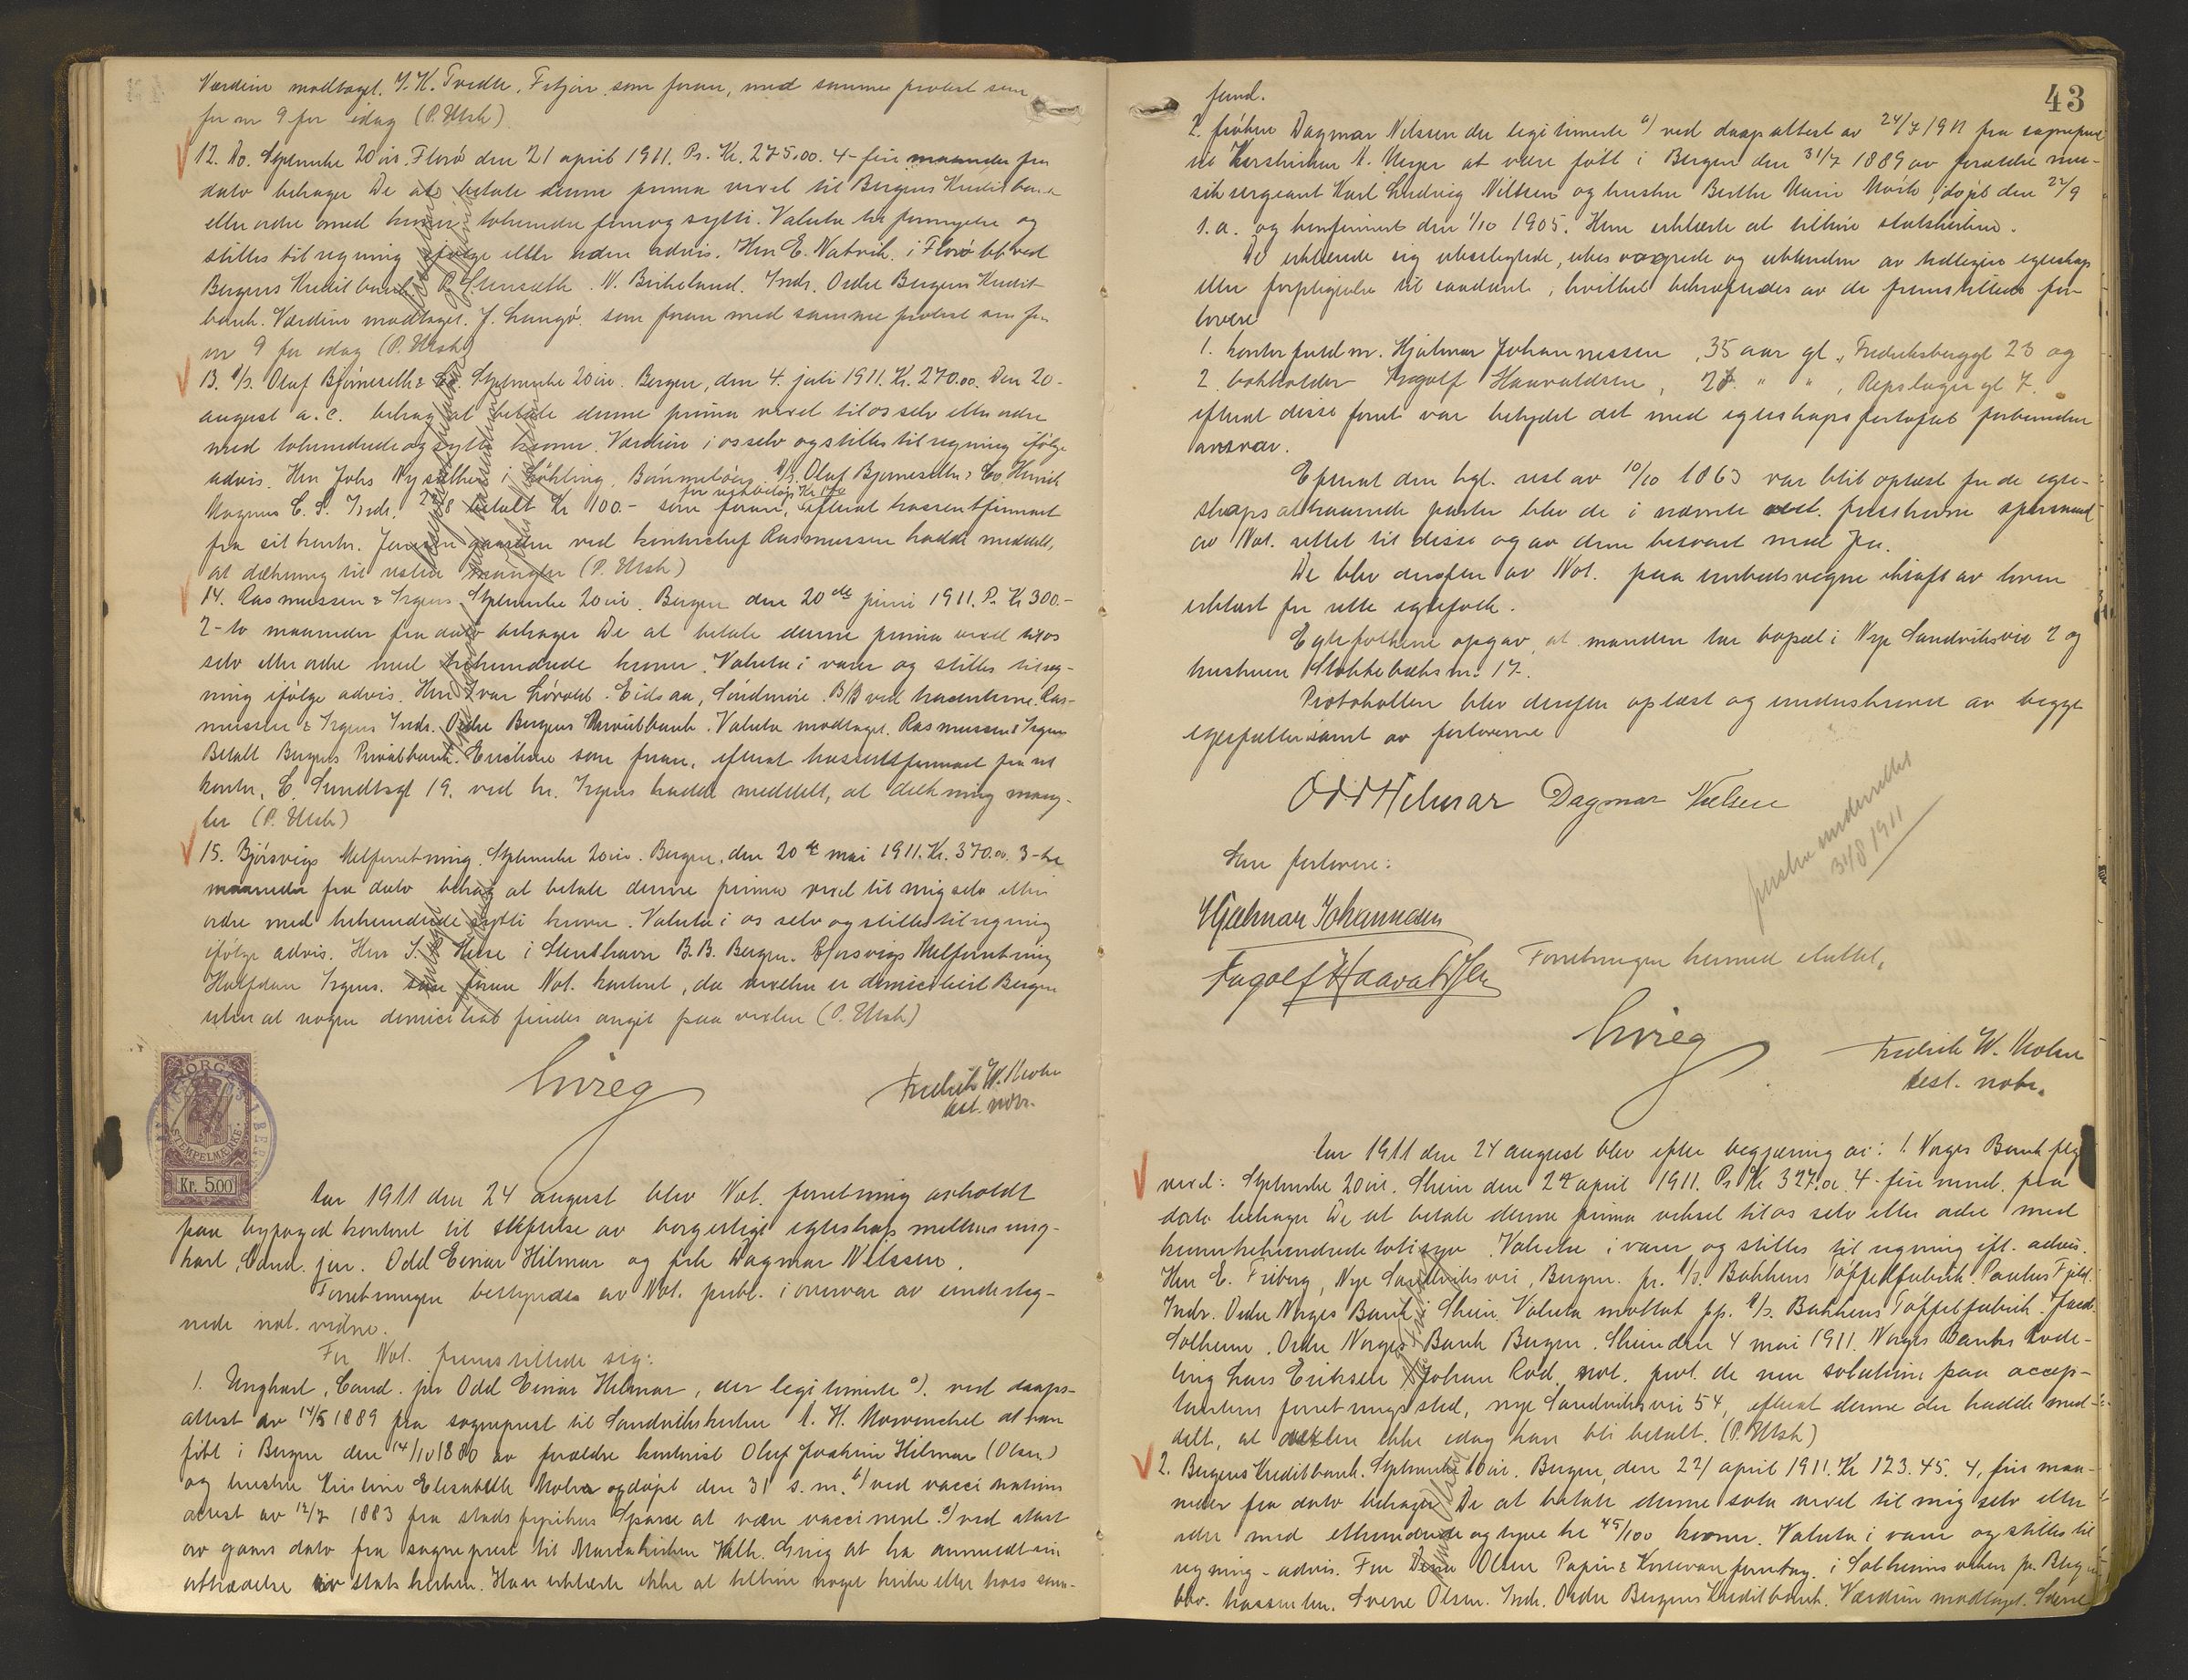 Værdien modtaget. J. K. Tvedte, Fitjar som foran, med samme protest som
for nr 9 for idag (P. Utsk)
12. Do. Stplmrke 20 øre. Florø den 21 april 1911. Pr. Kr. 275,00. 4 - fire maaneder fra
dato behager De at betale denne prima vexel til Bergens Kreditbank
eller ordre med kroner tohundrede femogsytti. Valuta til fornyelse og
stilles til regning ifølge eller uden advis. Herr E. Natvik i Florø bet. ved
Bergens Kreditbank. P. Stensæth. N. Birkeland. Indr. Ordre Bergens Kredit-
bank. Værdien modtaget. J. Langø. som foran med samme protest som for
nr 9 for idag (P. Utsk)
13. A/s. Oluf Bjørneseth & Co. Stplmrke 20 øre. Bergen, den 4. juli 1911. Kr. 270.00. Den 20-
august a. c. behag at betale denne prima vexel til os selv eller ordre
med tohundredeogsytti kroner. Værdien i os selv og stilles til regning ifølge
advis. Herr Johs Nysæther i Bømmeløen. A/s. Oluf Bjørneseth & Co. Henrik
Magnus C. S. Indr. 21/8 betalt Kr 100.- som foran, efterat kassentfirmaet
for restbeløp Kr 170
fra sit kontor. ved kontorchef Rasmussen hadde meddelt,
at dækning til resten mangler (P. Utsk)
14. Rasmussen & Irgens. Stplmrke 20 øre. Bergen den 20de juni 1911. Pr. Kr 300.-
2 - to maaneder fra dato behager De at betale denne prima vexel til os
selv eller ordre med trehundrede kroner. Valuta i varer og stilles til reg-
ning ifølge advis. Herr Ivar Løvold. Eidsaa, Søndmøre. B/B ved trassenterne. Ras-
mussen & Irgens Indr. Ordre Bergens Privatbank. Valuta modtaget. Rasmussen & Irgens
Betalt Bergens Privatbank. som foran, efterat trassentfirmaet fra sit
kontor, C. Sundtsgt 19. ved hr. Irgens hadde meddelt, at dækning mang-
ler (P. Utsk)
15. Bjørsvigs Melforretning. Stplmrke 20 øre. Bergen, den 20de mai 1911. Kr. 370.00. 3 - tre
maaneder fra dato behag at betale denne prima vexel til mig selv eller
ordre med trehundrede sytti kroner. Valuta i os selv og stilles til regning
ifølge advis. Herr S. i B.B. Bergen. Bjørsvigs Melforretning
Halfdan Irgens. som foran Not. kontoret, da vexelen er domicilieret Bergen
uten at nogen domiciliat findes angit paa vexelen (P. Utsk)
NORGE STEMPELMÆRKE Kr. 5.00
Grieg
Fredrik W. Mohn
test. notr.
Aar 1911 den 24 august blev Not. forretning avholdt
paa byfoged kontoret til stiftelse av borgerligt egteskap mellem ung-
karl, Cand. jur. Odd Einar Hilmar og frk Dagmar Nilssen.
Forretningen bestyredes av Not. publ. i overvær av underteg-
nede not. vidne.
For Not. fremstillede sig:
1. Ungkarl, Cand. jur Odd Einar Hilmar, der legitimerte a). ved daaps-
attest av 14/5 1889 fra sogneprest til Sandvikskirken at han
født i Bergen den 14/10 1880 av forældre kontorist Oluf Joakim Hilmar (Olsen)
og hustru Kirstine Elisabeth Mohr og døpt den 31 s. m. b) ved vaccinations
attest av 12/7 1883 fra stadsfysikus at være vaccineret. c) ved attest
av gaars dato fra sogneprest til Mariakirken Grieg at ha anmeldt sin
uttrædelse av statskirken. Han erklærte ikke at tilhøre noget kirke eller tros sam-
43
fund.
2. frøken Dagmar Nilssen der legitimerte a) ved daapsattest av 24/7 1911 fra sogneprest
til Korskirken at være født i Bergen den 31/7 1889 av forældre mu-
siksergeant Karl Ludvig Nilssen og hustru Berthe Marie døpt den 22/9
s. a. og konfirmert den 1/10 1905. Hun erklærte at tilhøre statskirken.
De erklærede sig ubeslegtede, ubesvogrede og ubundne av tidligere egteskap
eller forpligtelse til saadant, hvilket bekræftedes av de fremstillede for-
lovere
1. kontorfuldm. Hjalmar Johannessen, 35 aar gl., Fredriksberggt 23 og
2. bokholder Ingolf Haavaldsen, 27. " " , Repslagergt 7.
efterat disse foret var betydet det med egteskapsforløftet forbundne
ansvar.
Efterat den kgl. resl av 10/10 1863 var blit oplæst for de egte-
skapsattraaende parter blev de i nævnte resl. foreskrevne spørsmaal
av Not. rettet til disse og av dem besvaret med Ja.
De blev derefter av Not. paa embedsvegne ikraft av loven
erklæret for rette egtefolk.
Egtefolkene opgav, at manden har bopæl i Nye Sandviksvei 2 og
hustruen Stokkebæks nr. 17.
Protokollen blev derefter oplæst og underskrevet av begge
egtefæller samt av forloverne
Odd Hilmar Dagmar Nilssen
Som forlovere:
Hjalmar Johannessen
Ingolf Haavaldsen
presten underrettet
31/8 1911
Forretningen hermed sluttet.
Grieg
Fredrik W. Mohn
test. notr.
Aar 1911 den 24 august blev efter begjæring av: 1. Norges Bank flg
vexel: Stplmrke 20 øre. Skien den 22 april 1911. Pr Kr 327.00. 4 - fire mnd. fra
dato behager De at betale denne prima veksel til os selv eller ordre med
kroner trehundrede totisyv. Valuta i varer og stilles til regning ifl. advis.
Herr E. Friberg, Nye Sandviksvei, Bergen. pr. A/s. Bakkens Tøffelfabrik. Paulus Fjeld.
Indr. Ordre Norges Bank i Skien. Valuta mottat pp. A/s. Bakkens Tøffelfabrik.
Solheim. Ordre Norges Bank Bergen. Skien den 4 mai 1911. Norges Banks Avde-
ling Lars Eriksen Johan Rod. not. prot. de non solutione paa accep-
tantens forretningssted, nye Sandviksvei 54, efterat denne der hadde med-
delt, at vexelen ikke idag kan bli betalt. (P. Utsk)
2. Bergens Kreditbank. Stplmrke 10 øre. Bergen, den 22/ april 1911. Kr 123.45. 4, fire maa-
neder fra dato behager De at betale denne sola vexel til mig selv eller
ordre med ethundrede og tyve tre 45/100 kroner. Valuta i varer og stilles til
regning - advis. Fru Olsen Papir & Kortevareforretning. i Solheimsviken pr. Bergen
bko. trassenten. Sverre Olsen. Indr. Ordre Bergens Kreditbank. Værdien modtaget. Sverre